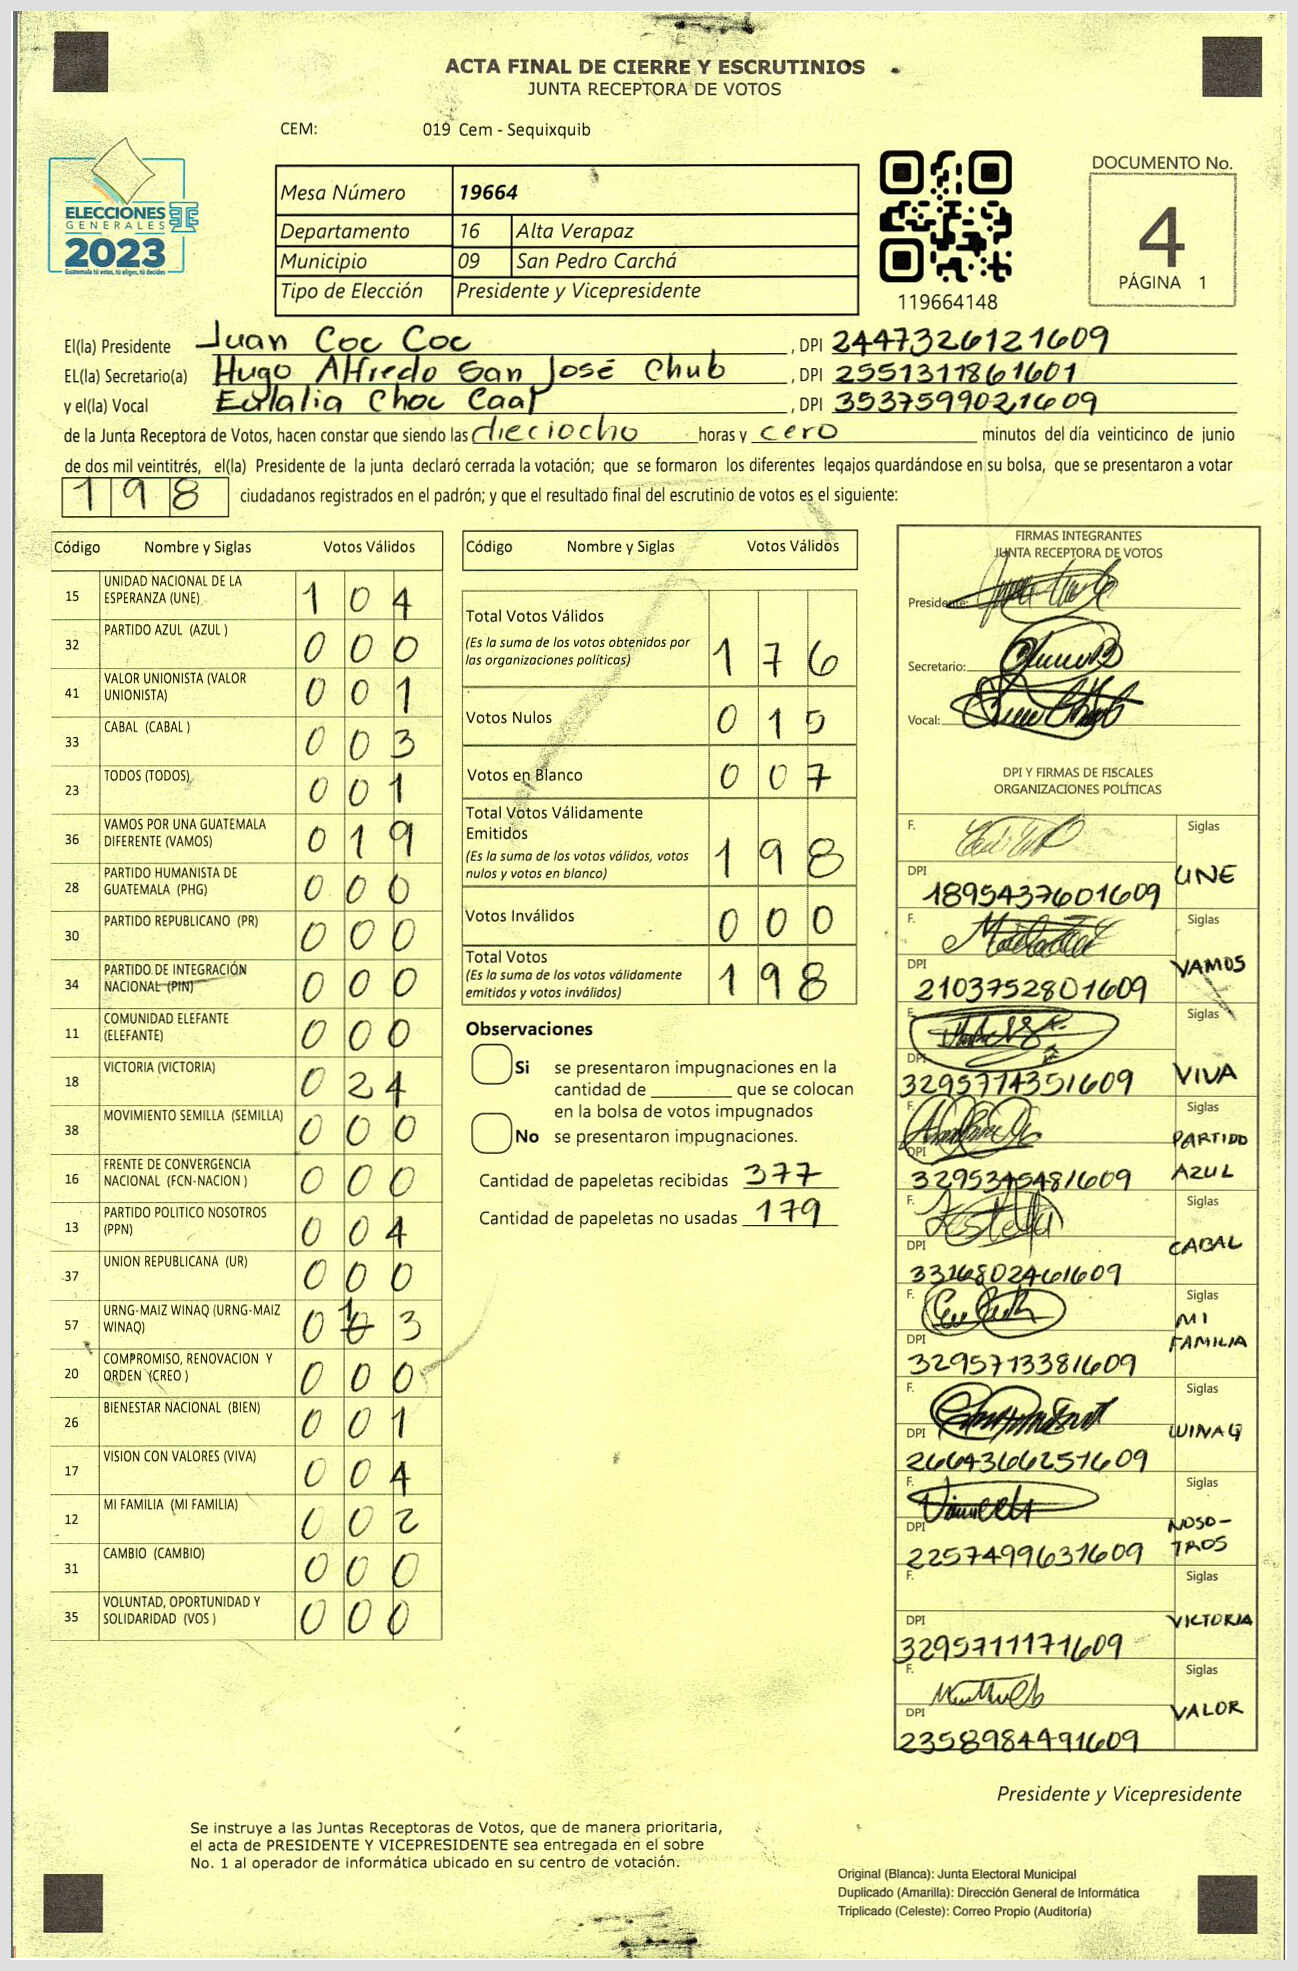 ACTA FINAL DE CIERRE Y ESCRUTINIOS
JUNTA RECEPTORA DE VOTOS
CEM: 019 Cem - Sequixquib
ELECCIONES
GENERALES
2023
Guatemala tú votas, tú eliges, tú decides
Mesa Número 19664
Departamento 16 Alta Verapaz
Municipio 09 San Pedro Carchá
Tipo de Elección Presidente y Vicepresidente
119664148
DOCUMENTO No.
4
PÁGINA 1
El(la) Presidente Juan Coc Coc , DPI 2447326121609
EL(la) Secretario(a) Hugo Alfredo San José Chub , DPI 2551311861601
y el(la) Vocal Eulalia Choc Caal , DPI 3537599021609
de la Junta Receptora de Votos, hacen constar que siendo las dieciocho horas y cero minutos del día veinticinco de junio
de dos mil veintitrés, el(la) Presidente de la junta declaró cerrada la votación; que se formaron los diferentes legajos quardándose en su bolsa, que se presentaron a votar
198 ciudadanos registrados en el padrón; y que el resultado final del escrutinio de votos es el siguiente:
Código Nombre y Siglas Votos Válidos
15 UNIDAD NACIONAL DE LA ESPERANZA (UNE) 1 0 4
32 PARTIDO AZUL (AZUL ) 0 0 0
41 VALOR UNIONISTA (VALOR UNIONISTA) 0 0 1
33 CABAL (CABAL ) 0 0 3
23 TODOS (TODOS) 0 0 1
36 VAMOS POR UNA GUATEMALA DIFERENTE (VAMOS) 0 1 9
28 PARTIDO HUMANISTA DE GUATEMALA (PHG) 0 0 0
30 PARTIDO REPUBLICANO (PR) 0 0 0
34 PARTIDO DE INTEGRACIÓN NACIONAL (PIN) 0 0 0
11 COMUNIDAD ELEFANTE (ELEFANTE) 0 0 0
18 VICTORIA (VICTORIA) 0 2 4
38 MOVIMIENTO SEMILLA (SEMILLA) 0 0 0
16 FRENTE DE CONVERGENCIA NACIONAL (FCN-NACION ) 0 0 0
13 PARTIDO POLITICO NOSOTROS (PPN) 0 0 4
37 UNION REPUBLICANA (UR) 0 0 0
57 URNG-MAIZ WINAQ (URNG-MAIZ WINAQ) 0 1 3
20 COMPROMISO, RENOVACION Y ORDEN (CREO ) 0 0 0
26 BIENESTAR NACIONAL (BIEN) 0 0 1
17 VISION CON VALORES (VIVA) 0 0 4
12 MI FAMILIA (MI FAMILIA) 0 0 2
31 CAMBIO (CAMBIO) 0 0 0
35 VOLUNTAD, OPORTUNIDAD Y SOLIDARIDAD (VOS ) 0 0 0
Código Nombre y Siglas Votos Válidos
Total Votos Válidos
(Es la suma de los votos obtenidos por
las organizaciones políticas) 1 7 6
Votos Nulos 0 1 5
Votos en Blanco 0 0 7
Total Votos Válidamente
Emitidos
(Es la suma de los votos válidos, votos
nulos y votos en blanco) 1 9 8
Votos Inválidos 0 0 0
Total Votos
(Es la suma de los votos válidamente
emitidos y votos inválidos) 1 9 8
Observaciones
Si se presentaron impugnaciones en la
cantidad de ________ que se colocan
en la bolsa de votos impugnados
No se presentaron impugnaciones.
Cantidad de papeletas recibidas 377
Cantidad de papeletas no usadas 179
FIRMAS INTEGRANTES
JUNTA RECEPTORA DE VOTOS
Presidente:
Secretario:
Vocal:
DPI Y FIRMAS DE FISCALES
ORGANIZACIONES POLÍTICAS
F. Siglas
DPI UNE
1895437601609
F. Siglas
DPI VAMOS
2103752801609
F. Siglas
DPI VIVA
3295774351609
F. Siglas
DPI PARTIDO AZUL
3295345481609
F. Siglas
DPI CABAL
3316802461609
F. Siglas
DPI MI FAMILIA
3295713381609
F. Siglas
DPI WINAQ
2664366251609
F. Siglas
DPI NOSO-TROS
2257499631609
F. Siglas
DPI VICTORIA
3295711171609
F. Siglas
DPI VALOR
2358984491609
Presidente y Vicepresidente
Se instruye a las Juntas Receptoras de Votos, que de manera prioritaria,
el acta de PRESIDENTE Y VICEPRESIDENTE sea entregada en el sobre
No. 1 al operador de informática ubicado en su centro de votación.
Original (Blanca): Junta Electoral Municipal
Duplicado (Amarilla): Dirección General de Informática
Triplicado (Celeste): Correo Propio (Auditoría)